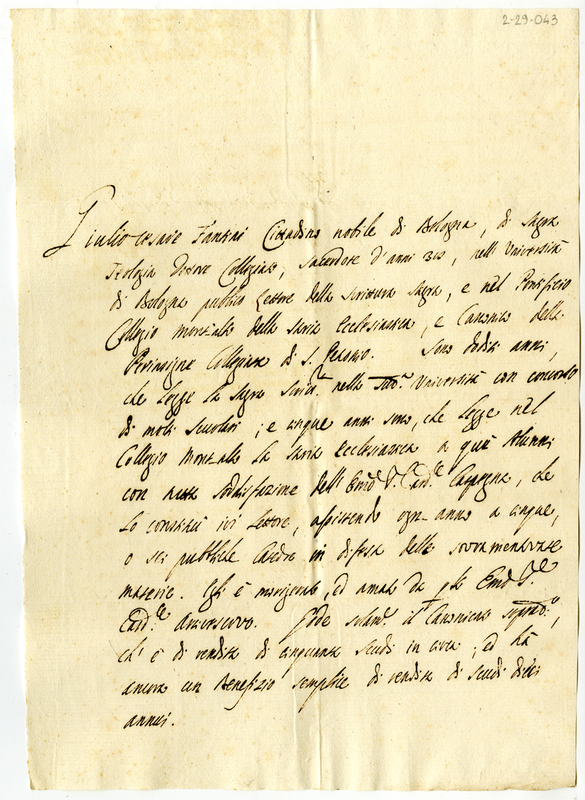 2-29-043
Giulio Cesare Fantini Cittadino nobile di Bologna, di Sagra
Teologia Dottore Collegiato, Sacerdote d'anni, nell'Università
di Bologna publico Lettore della Scrittura Sagra, e nel Pontificio
Collegio Montalto della Storia Ecclesiastica, e Canonico della
Perinsigne Collegiata di S. Petronio. Sono dodici anni,
che legge la Sagra Scritt.ª nella Sud.ª Università con concorso
di molti Scuolari; e cinque anni sono, che legge nel
Collegio Montalto la Storia Ecclesiastica a què Alunni
con tutta Soddisfazione dell'Emõ S.r Card.le Casoni, che
lo constituì ivi Lettore, assistendo ogn'anno a cinque,
o sei pubbliche in difesa delle sovramentovate
materie. Egli è morigerato, ed amato da Emõ S.r
Card.le Arcivescovo. Gode solam.te il Canonicato soprad.o,
ch'è di rendita di cinquanta scudi in circa; ed hà
ancora un Benefizio semplice di rendita di scudi dieci
annui.